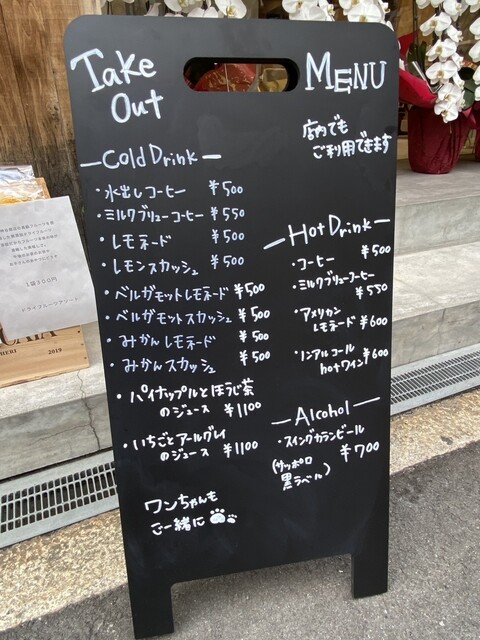 Take Out
MENU
店内でも
ご利用できます
Cold Drink
・水出しコーヒー ¥500
・ミルクブリューコーヒー ¥550
・レモネード ¥500
・レモンスカッシュ ¥500
・ベルガモットレモネード ¥500
・ベルガモットスカッシュ ¥500
・みかんレモネード ¥500
・みかんスカッシュ ¥500
・パイナップルとほうじ茶
のジュース ¥1100
・いちごとアールグレイ
のジュース ¥1100
ワンちゃんも
ご一緒に
Hot Drink
・コーヒー ¥500
・ミルクブリューコーヒー
¥550
・アメリカン
レモネード ¥600
・ノンアルコール ¥600
hotワイン
Alcohol
・スイングカランビール
¥700
(サッポロ
黒ラベル)
1袋300円
ドライフルーツアソート
2019